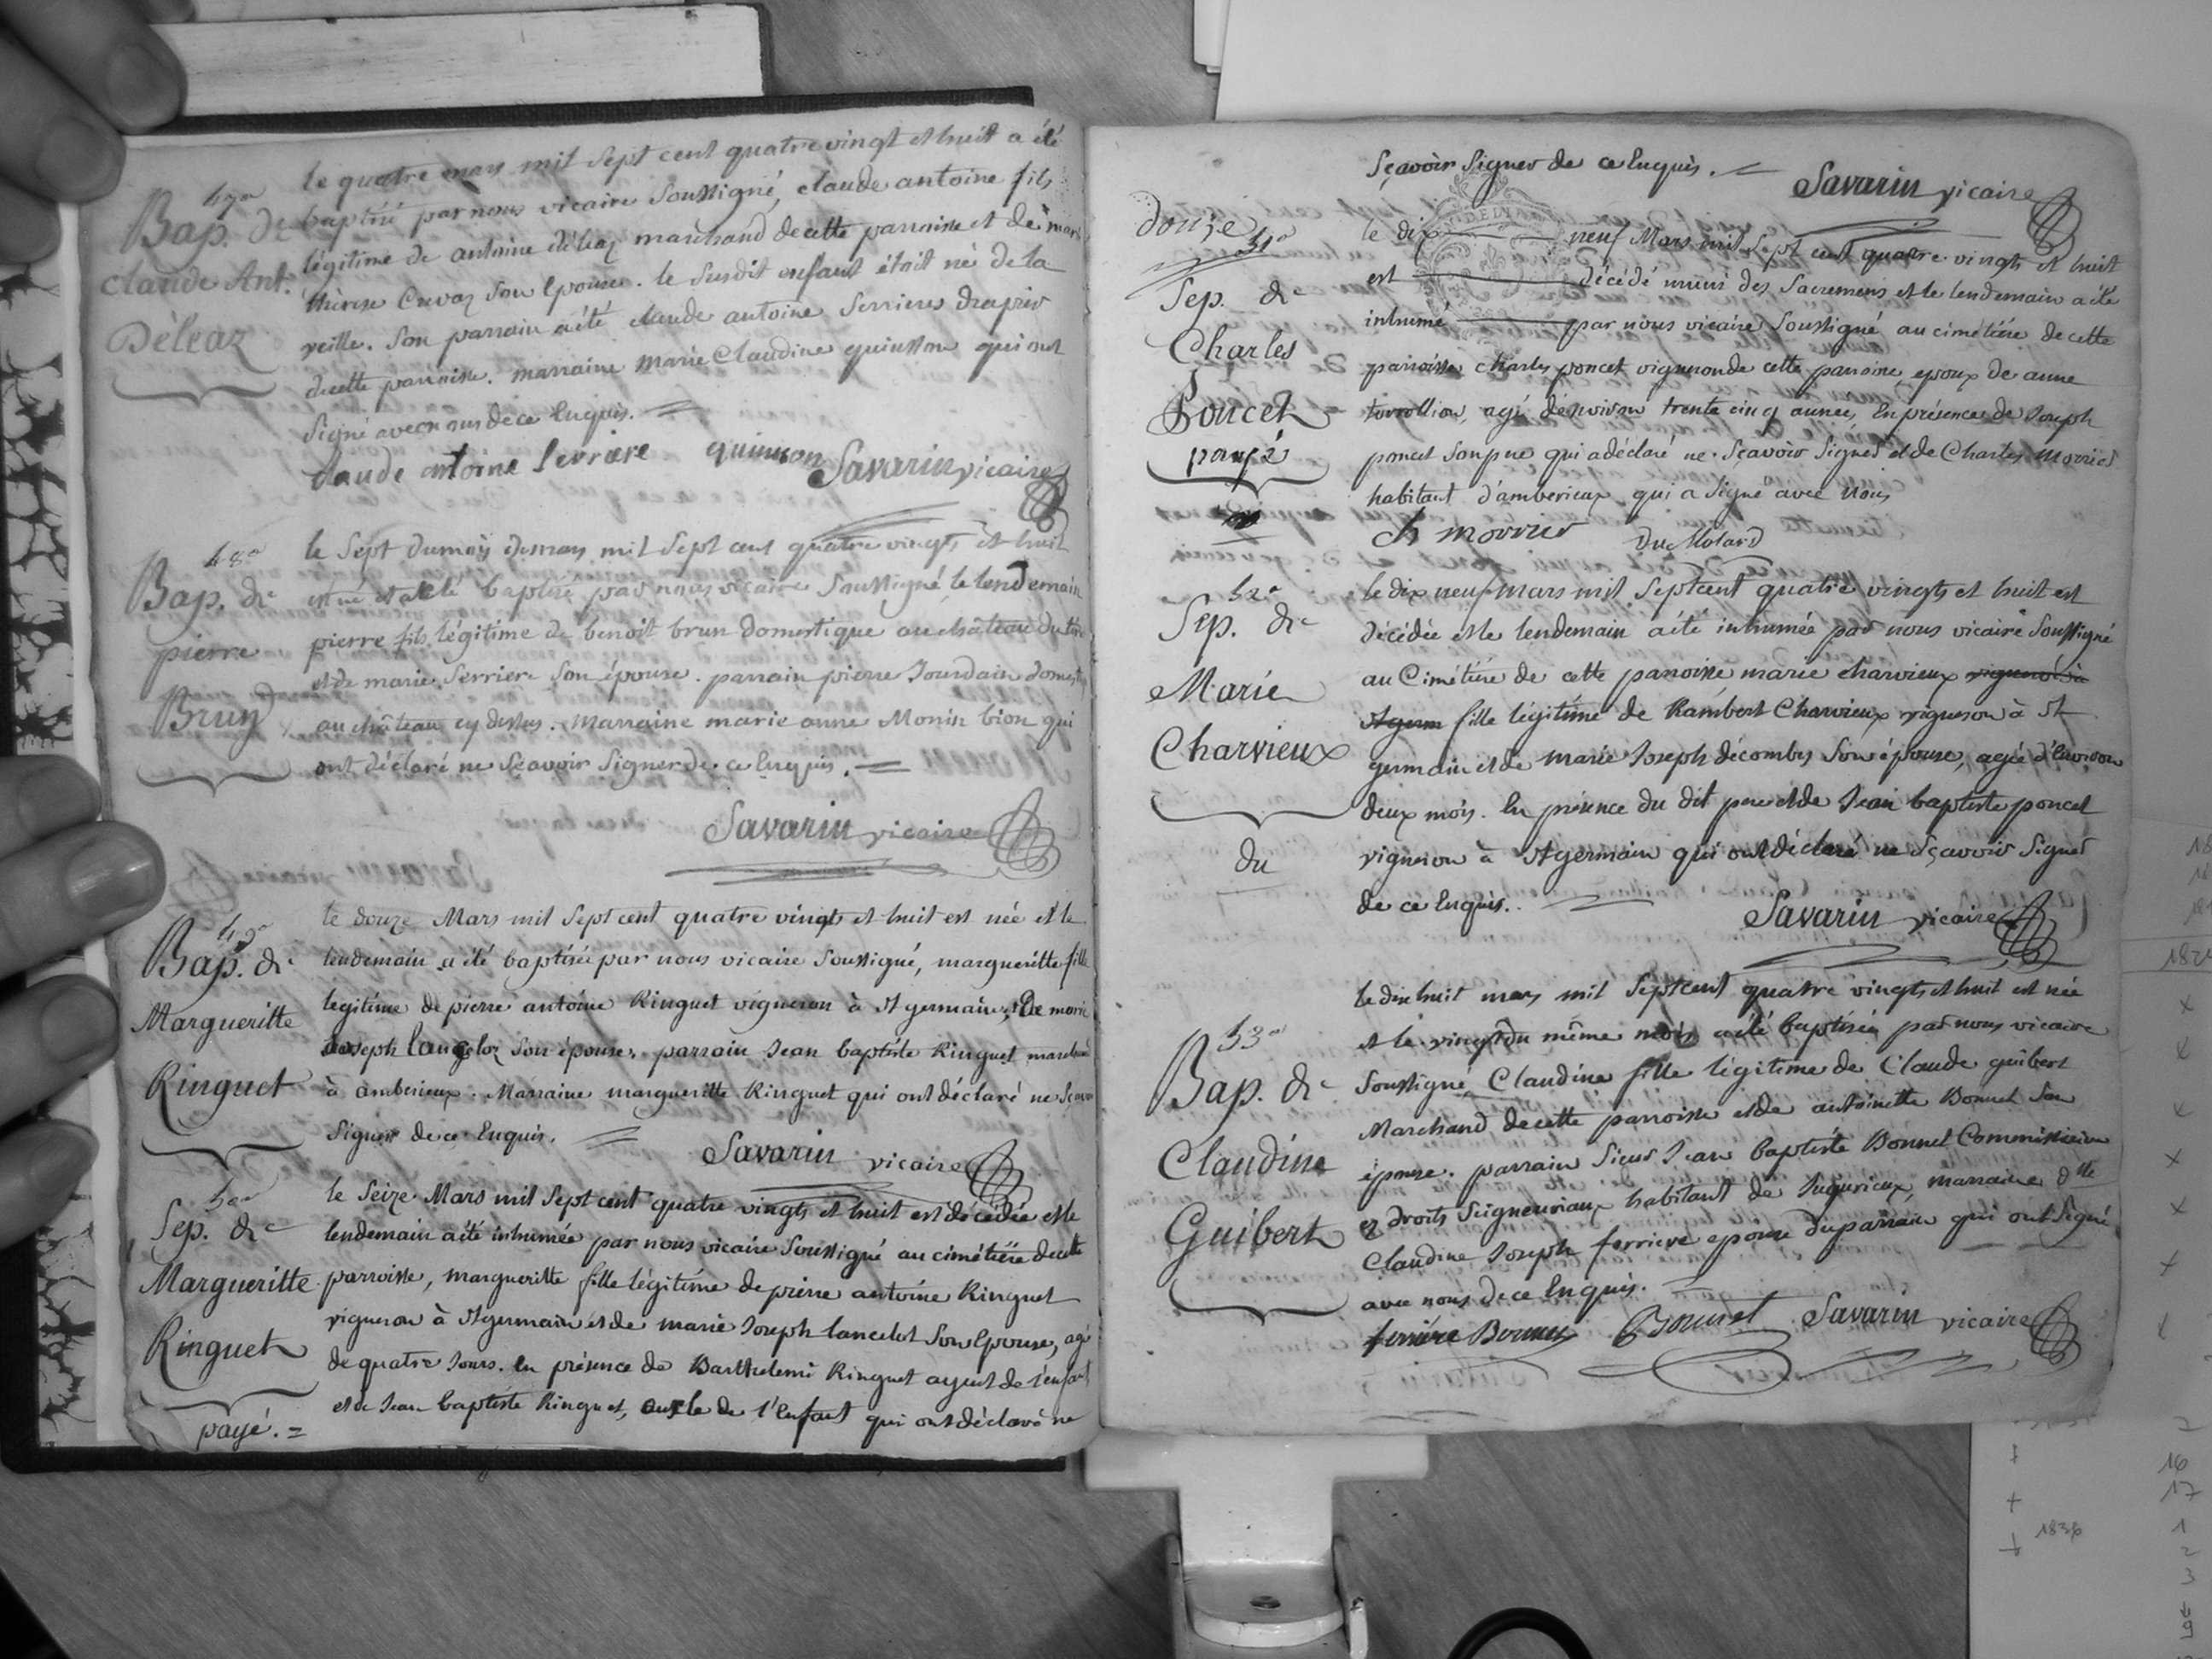 47e
Bap. de
claude Ant.
Déléaz
le quatre mars mil sept cent quatre vingt et huit a été
baptisé par nous vicaire soussigné, claude antoine fils
légitime de antoine déléaz marchand de cette parroisse et de marie
thérese Cuvaz son épouse. le susdit enfant étoit né de la
veille. son parrain a été claude antoine serrieres drapier
de cette parroisse. marraine marie Claudine quinson qui ont
signé avec nous de ce enquis.
claude antoine serriere quinson Savarin vicaire
48e
Bap. de
pierre
Brun
le sept du mois de mars mil sept cent quatre vingts et huit
est né et a été baptisé par nous vicaire soussigné le lendemain
pierre fils légitime de benoit brun domestique au château du
et de marie serriere son épouse. parrain pierre Jourdain domest
au château cy dessus. marraine marie anne Monin bion qui
ont déclaré ne sçavoir signer de ce enquis.
Savarin vicaire
49e
Bap. de
Margueritte
Ringuet
le douze Mars mil sept cent quatre vingt et huit est née et le
lendemain a été baptisée par nous vicaire soussigné, margueritte fille
legitime de pierre antoine Ringuet vigneron à st germain, et De marie
Joseph lancelot son épouse. parrain Jean baptiste Ringuet marchand
à amberieux. Marraine margueritte Ringuet qui ont déclaré ne sçavoir
signer de ce enquis.
Savarin vicaire
50e
Sep. de
Margueritte
Ringuet
payé. =
le seize Mars mil sept cent quatre vingts et huit est décédée et le
lendemain a été inhumée par nous vicaire soussigné au cimétiére de cette
parroisse, margueritte fille légitime de pierre antoine Ringuet
vigneron à st germain et de marie Joseph lancelot son épouse, agé
de quatre Jours. en présence de Barthelemi Ringuet ayeul de l'enfant
et de Jean baptiste Ringuet, oncle de l'enfant qui ont déclaré ne
sçavoir signer de ce enquis.
Savarin vicaire
douze
51e
Sep. de
Charles
Poncet
payé
le dix neuf Mars mil sept cent quatre vingts et huit
est décédé muni des Sacremens et le lendemain a été
inhumé par nous vicaire soussigné au cimétiére de cette
parroisse, charles poncet vigneron de cette parroisse, epoux de anne
torrollion, agé d'environ trente cinq années, en présence de Joseph
poncet son pere qui a déclaré ne sçavoir signer et de Charles Morrier
habitant d'amberieux qui a signé avec nous
ch morrier du Molard
52e
Sep. de
Marie
Charvieux
du
le dix neuf mars mil sept cent quatre vingts et huit est
décédée et le lendemain a été inhumée par nous vicaire soussigné
au Cimétiére de cette parroisse marie charvieux vigneron à
st germ fille légitime de Rambert Charvieux vigneron à st
germain et de marie Joseph décombes son épouse, agée d'environ
deux mois. En présence du dit pere et de Jean baptiste poncet
vigneron à st germain qui ont déclaré ne sçavoir signer
de ce enquis.
Savarin vicaire
53e
Bap. de
Claudine
Guibert
le dix huit mars mil sept cent quatre vingts et huit est née
et le vingt du même mois a été baptisée par nous vicaire
soussigné, Claudine fille légitime de Claude guibert
Marchand de cette parroisse et de antoinette Bonnet son
épouse. parrain sieur Jean Baptiste Bonnet Commissaire
ez droits seigneuriaux habitant de Jugurieux, marraine dlle
Claudine Joseph ferriere epouse du parrain qui ont signé
avec nous de ce enquis.
ferriere Bonnet Bonnet Savarin vicaire
1836
16
17
1
2
3